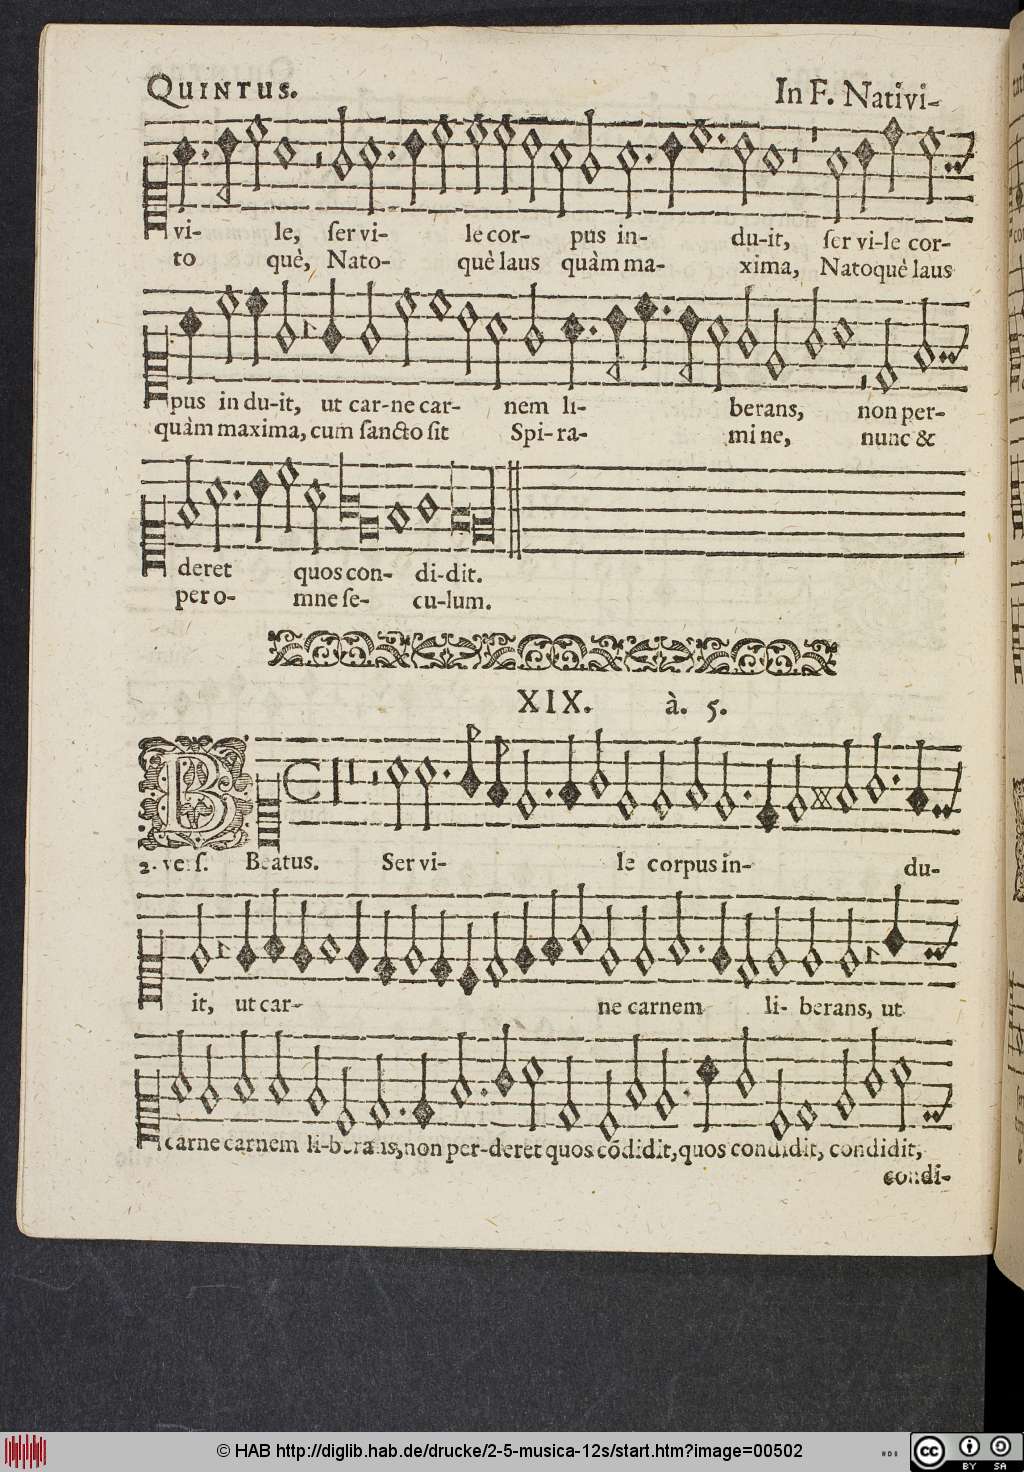 QUINTUS.
In F. Nativi-
vi- le, ſer vi- le cor- pus in- du-it, ſer vi-le cor-
to què, Nato- què laus quàm ma- xima, Natoquè laus
pus in du-it, ut car-ne car- nem li- berans, non per-
quàm maxima, cum ſancto ſit Spi-ra- mi ne, nunc &
deret quos con- di-dit.
per o- mne ſe- cu-lum.
XIX. à. 5.
B
2. verſ. Beatus. Ser vi- le corpus in- du-
it, ut car- ne carnem li- berans, ut
carne carnem li-berans, non per-deret quos cōdidit, quos condidit, condidit,
condi-
© HAB http://diglib.hab.de/drucke/2-5-musica-12s/start.htm?image=00502
cc BY SA